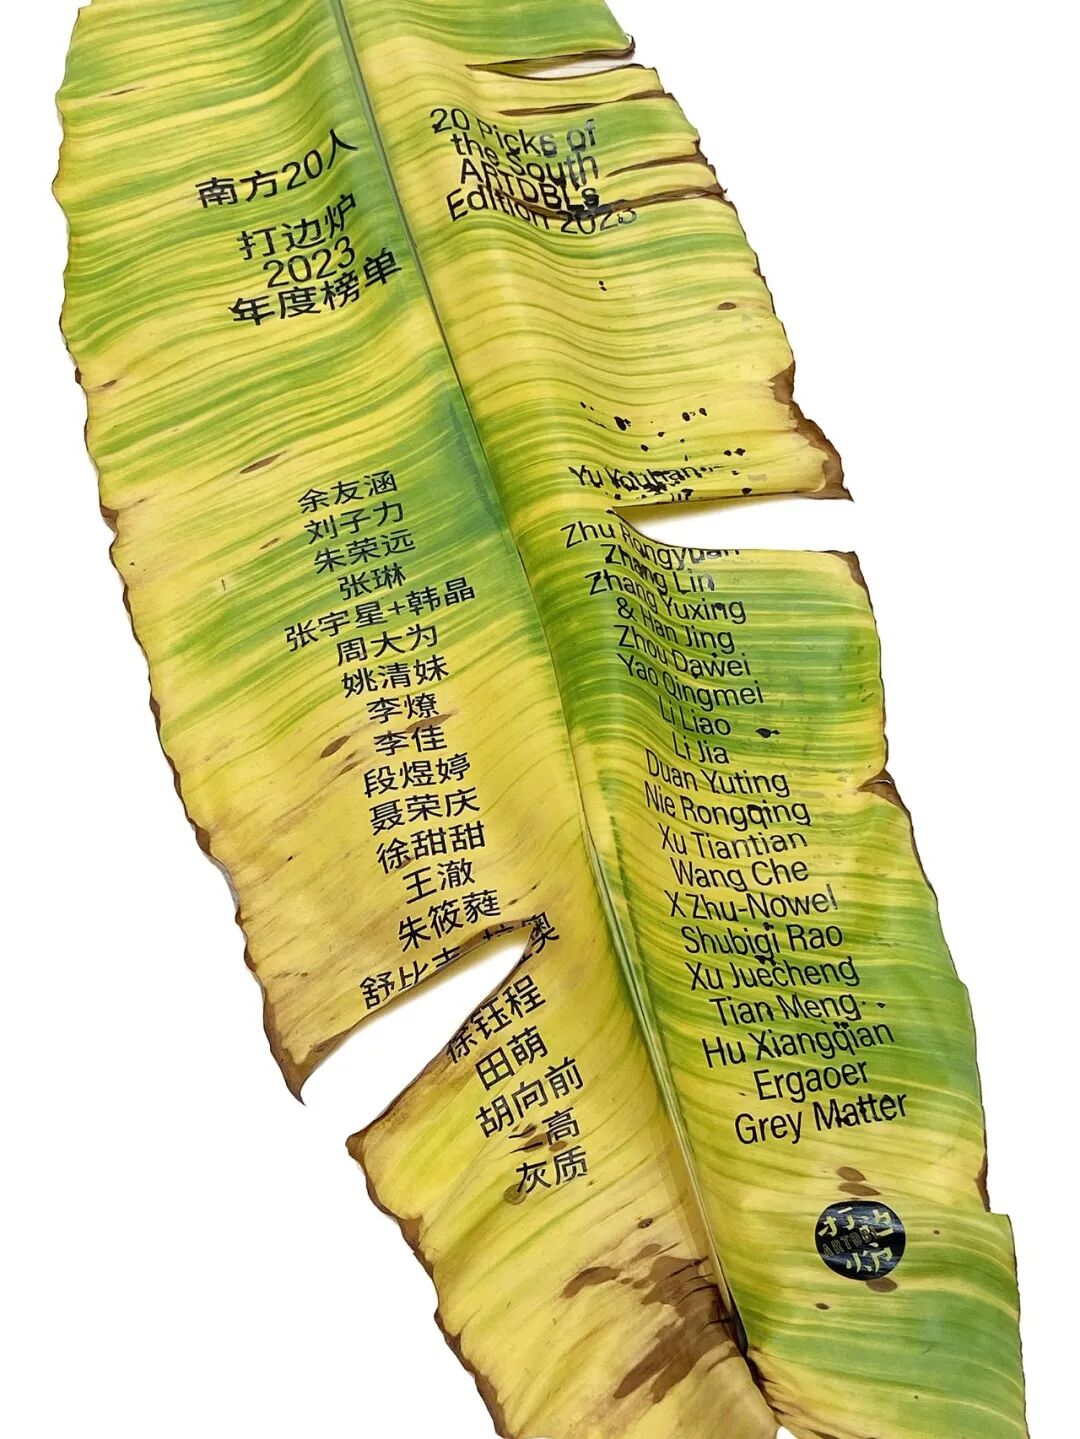 南方20人
打边炉
2023
年度榜单
余友涵
刘子力
朱荣远
张琳
张宇星+韩晶
周大为
姚清妹
李燎
李佳
段煜婷
聂荣庆
徐甜甜
王澈
朱筱蕤
舒比吉·拉澳
徐钰程
田萌
胡向前
二高
灰质
20 Picks of
the South
ARTDBLs
Edition 2023
Yu Youhan
Zhu Rongyuan
Zhang Lin
Zhang Yuxing
& Han Jing
Zhou Dawei
Yao Qingmei
Li Liao
Li Jia
Duan Yuting
Nie Rongqing
Xu Tiantian
Wang Che
X Zhu-Nowell
Shubigi Rao
Xu Juecheng
Tian Meng
Hu Xiangqian
Ergaoer
Grey Matter
打边炉
ARTDBL